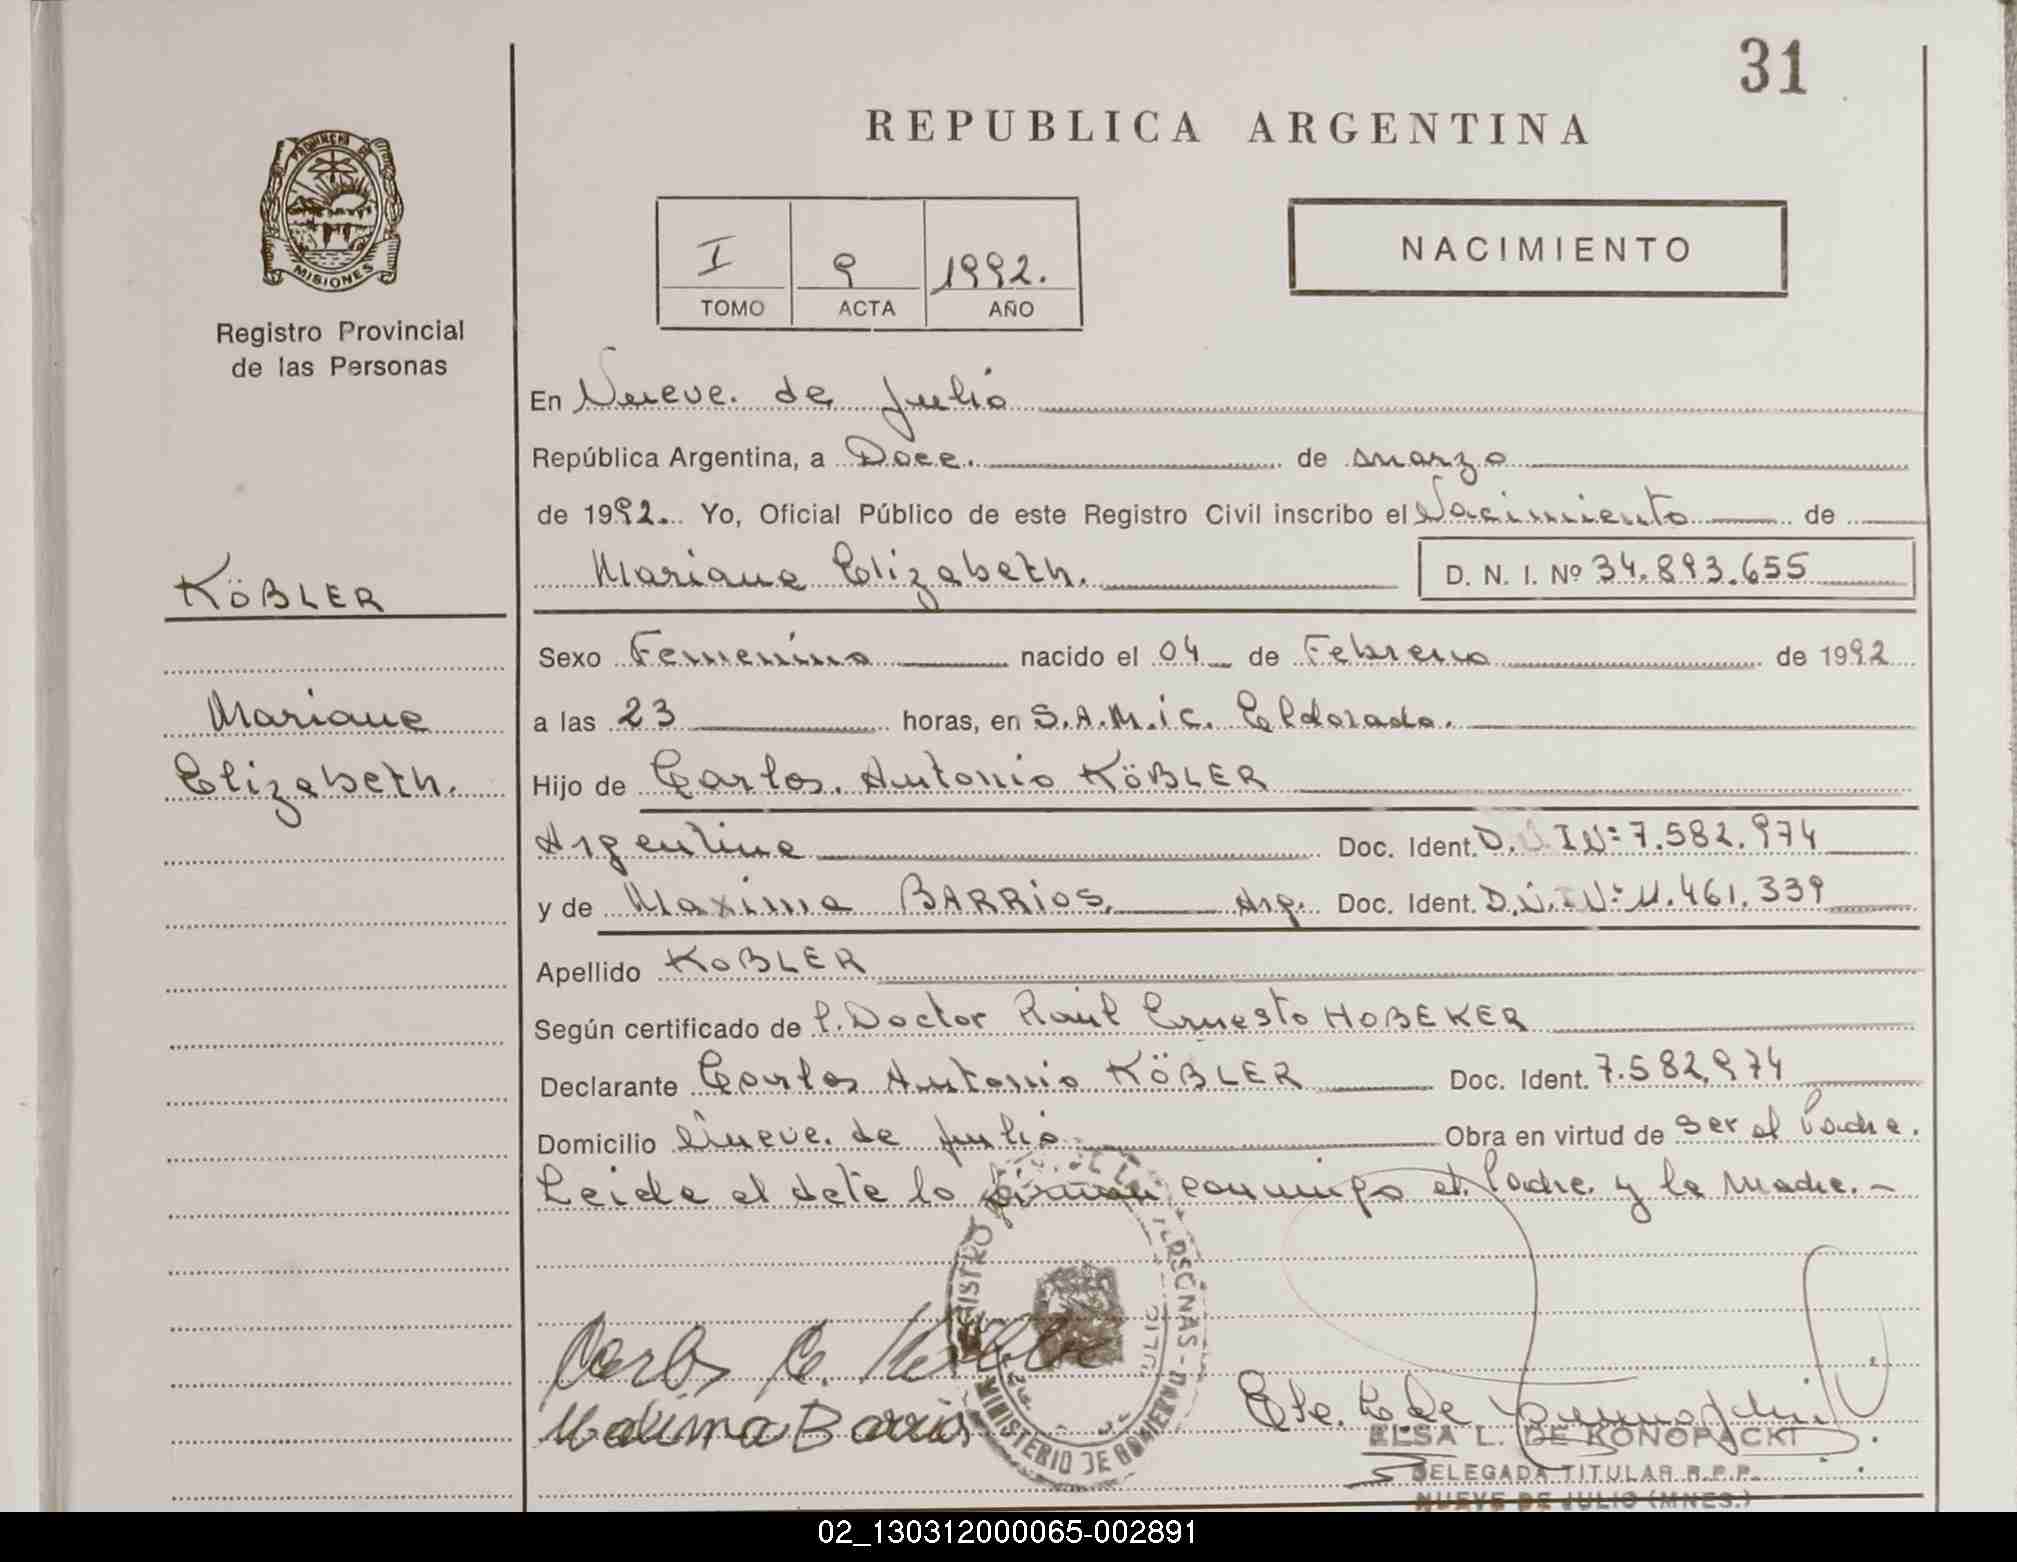 31
REPUBLICA ARGENTINA
PROVINCIA DE
MISIONES
Registro Provincial
de las Personas
I 9 1992.
TOMO ACTA AÑO
NACIMIENTO
En Nueve de Julio
República Argentina, a Doce. de marzo
de 1992. Yo, Oficial Público de este Registro Civil inscribo el Nacimiento de
Mariane Elizabeth. D. N. I. Nº 34.893.655
KÖBLER
Mariane
Elizabeth.
Sexo Femenino nacido el 04 de Febrero de 1992
a las 23 horas, en S.A.M.i.c. Eldorado.
Hijo de Carlos Antonio KÖBLER
Argentino Doc. Ident. D.N.I N: 7.582.974
y de Maxima BARRiOS, Arg. Doc. Ident. D.N.I N: 11.461.339
Apellido KOBLER
Según certificado de l. Doctor Raúl Ernesto HOBEKER
Declarante Carlos Antonio KÖBLER Doc. Ident. 7.582.974
Domicilio Nueve de Julio Obra en virtud de ser el Padre.
Leida el acta la firman conmigo el Padre y la Madre.-
Carlos A. Köbler
Maxima Barrios
MINISTERIO DE
ELSA L. DE KONOPACKI
DELEGADA TITULAR R.P.P.
NUEVE DE JULIO (MNES.)
02_130312000065-002891